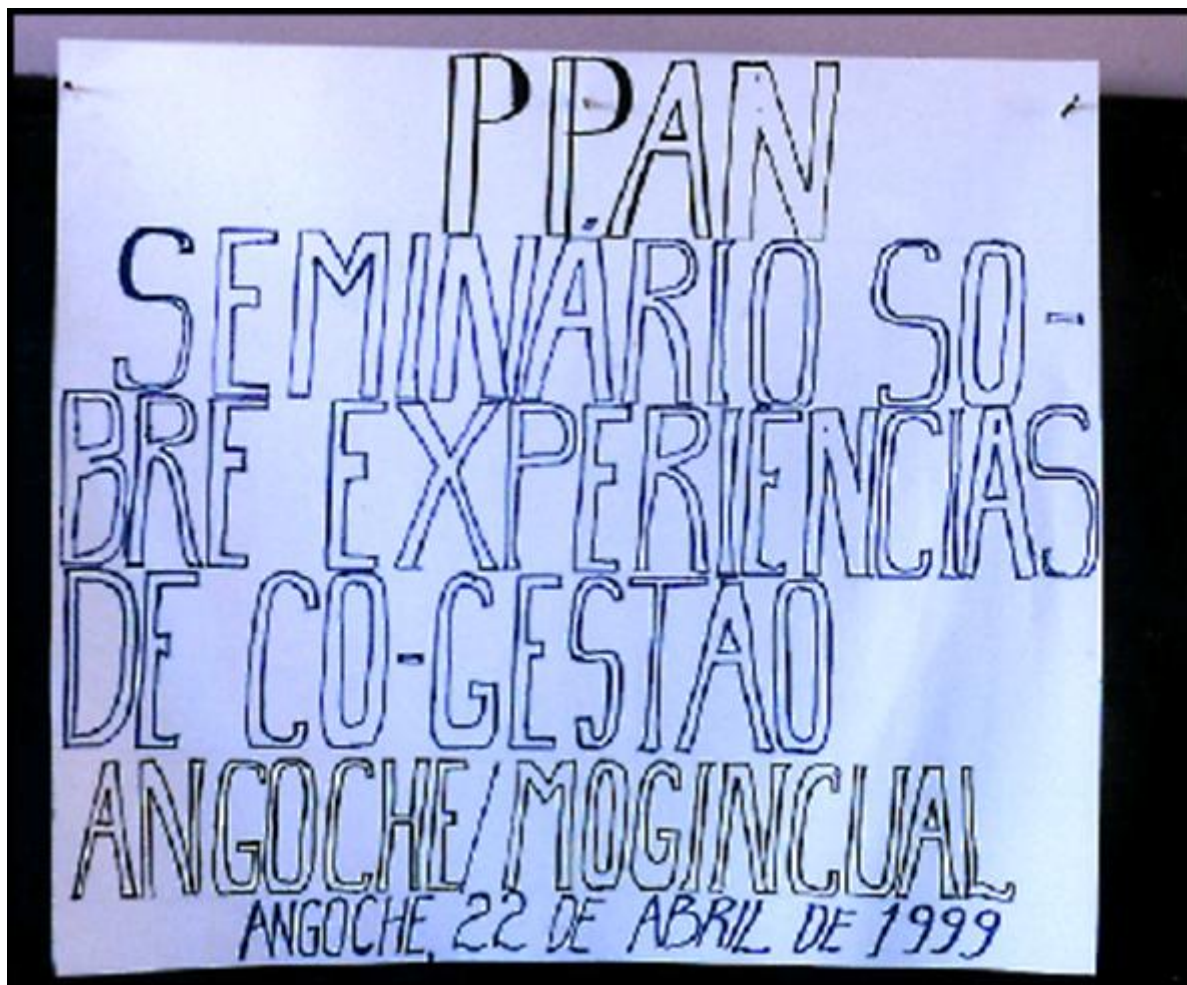 PPAN
SEMINÁRIO SO-
BRE EXPERIENCIAS
DE CO-GESTAO
ANGOCHE/MOGINCUAL
ANGOCHE, 22 DE ABRIL DE 1999